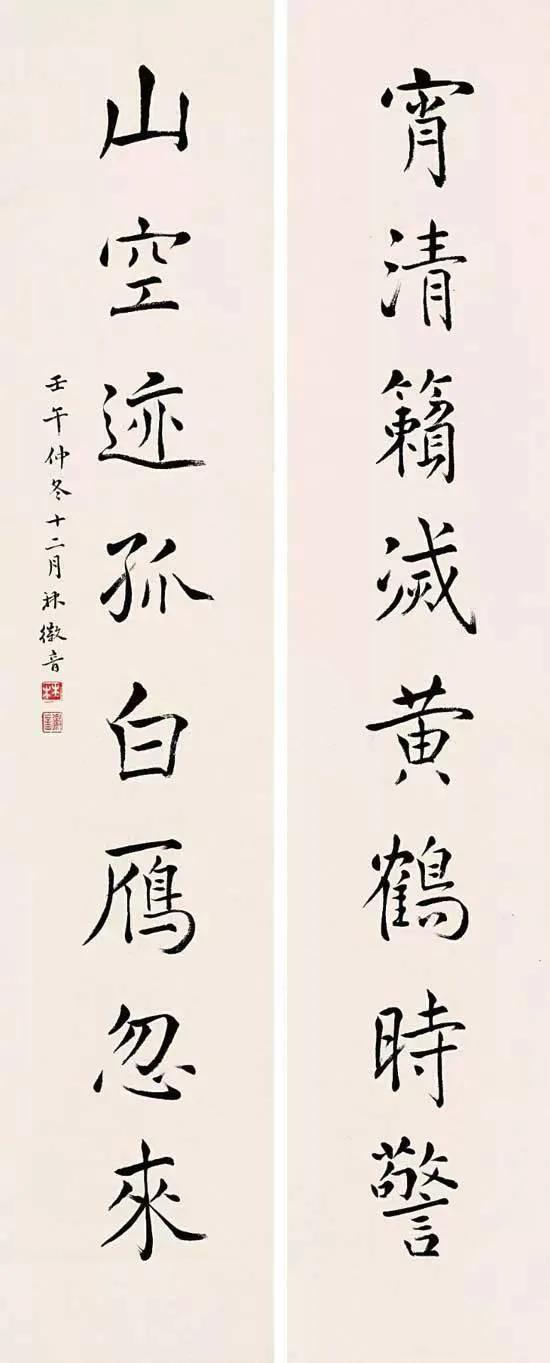 宵清籟滅黄鶴時警
山空迹孤白鴈忽來
壬午仲冬十二月林徽音
林